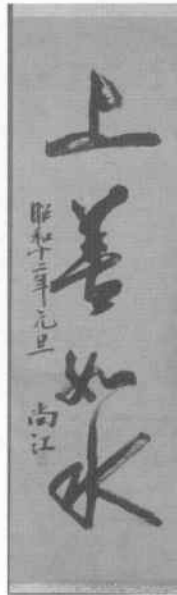 上善如水
昭和十二年元旦
尚江